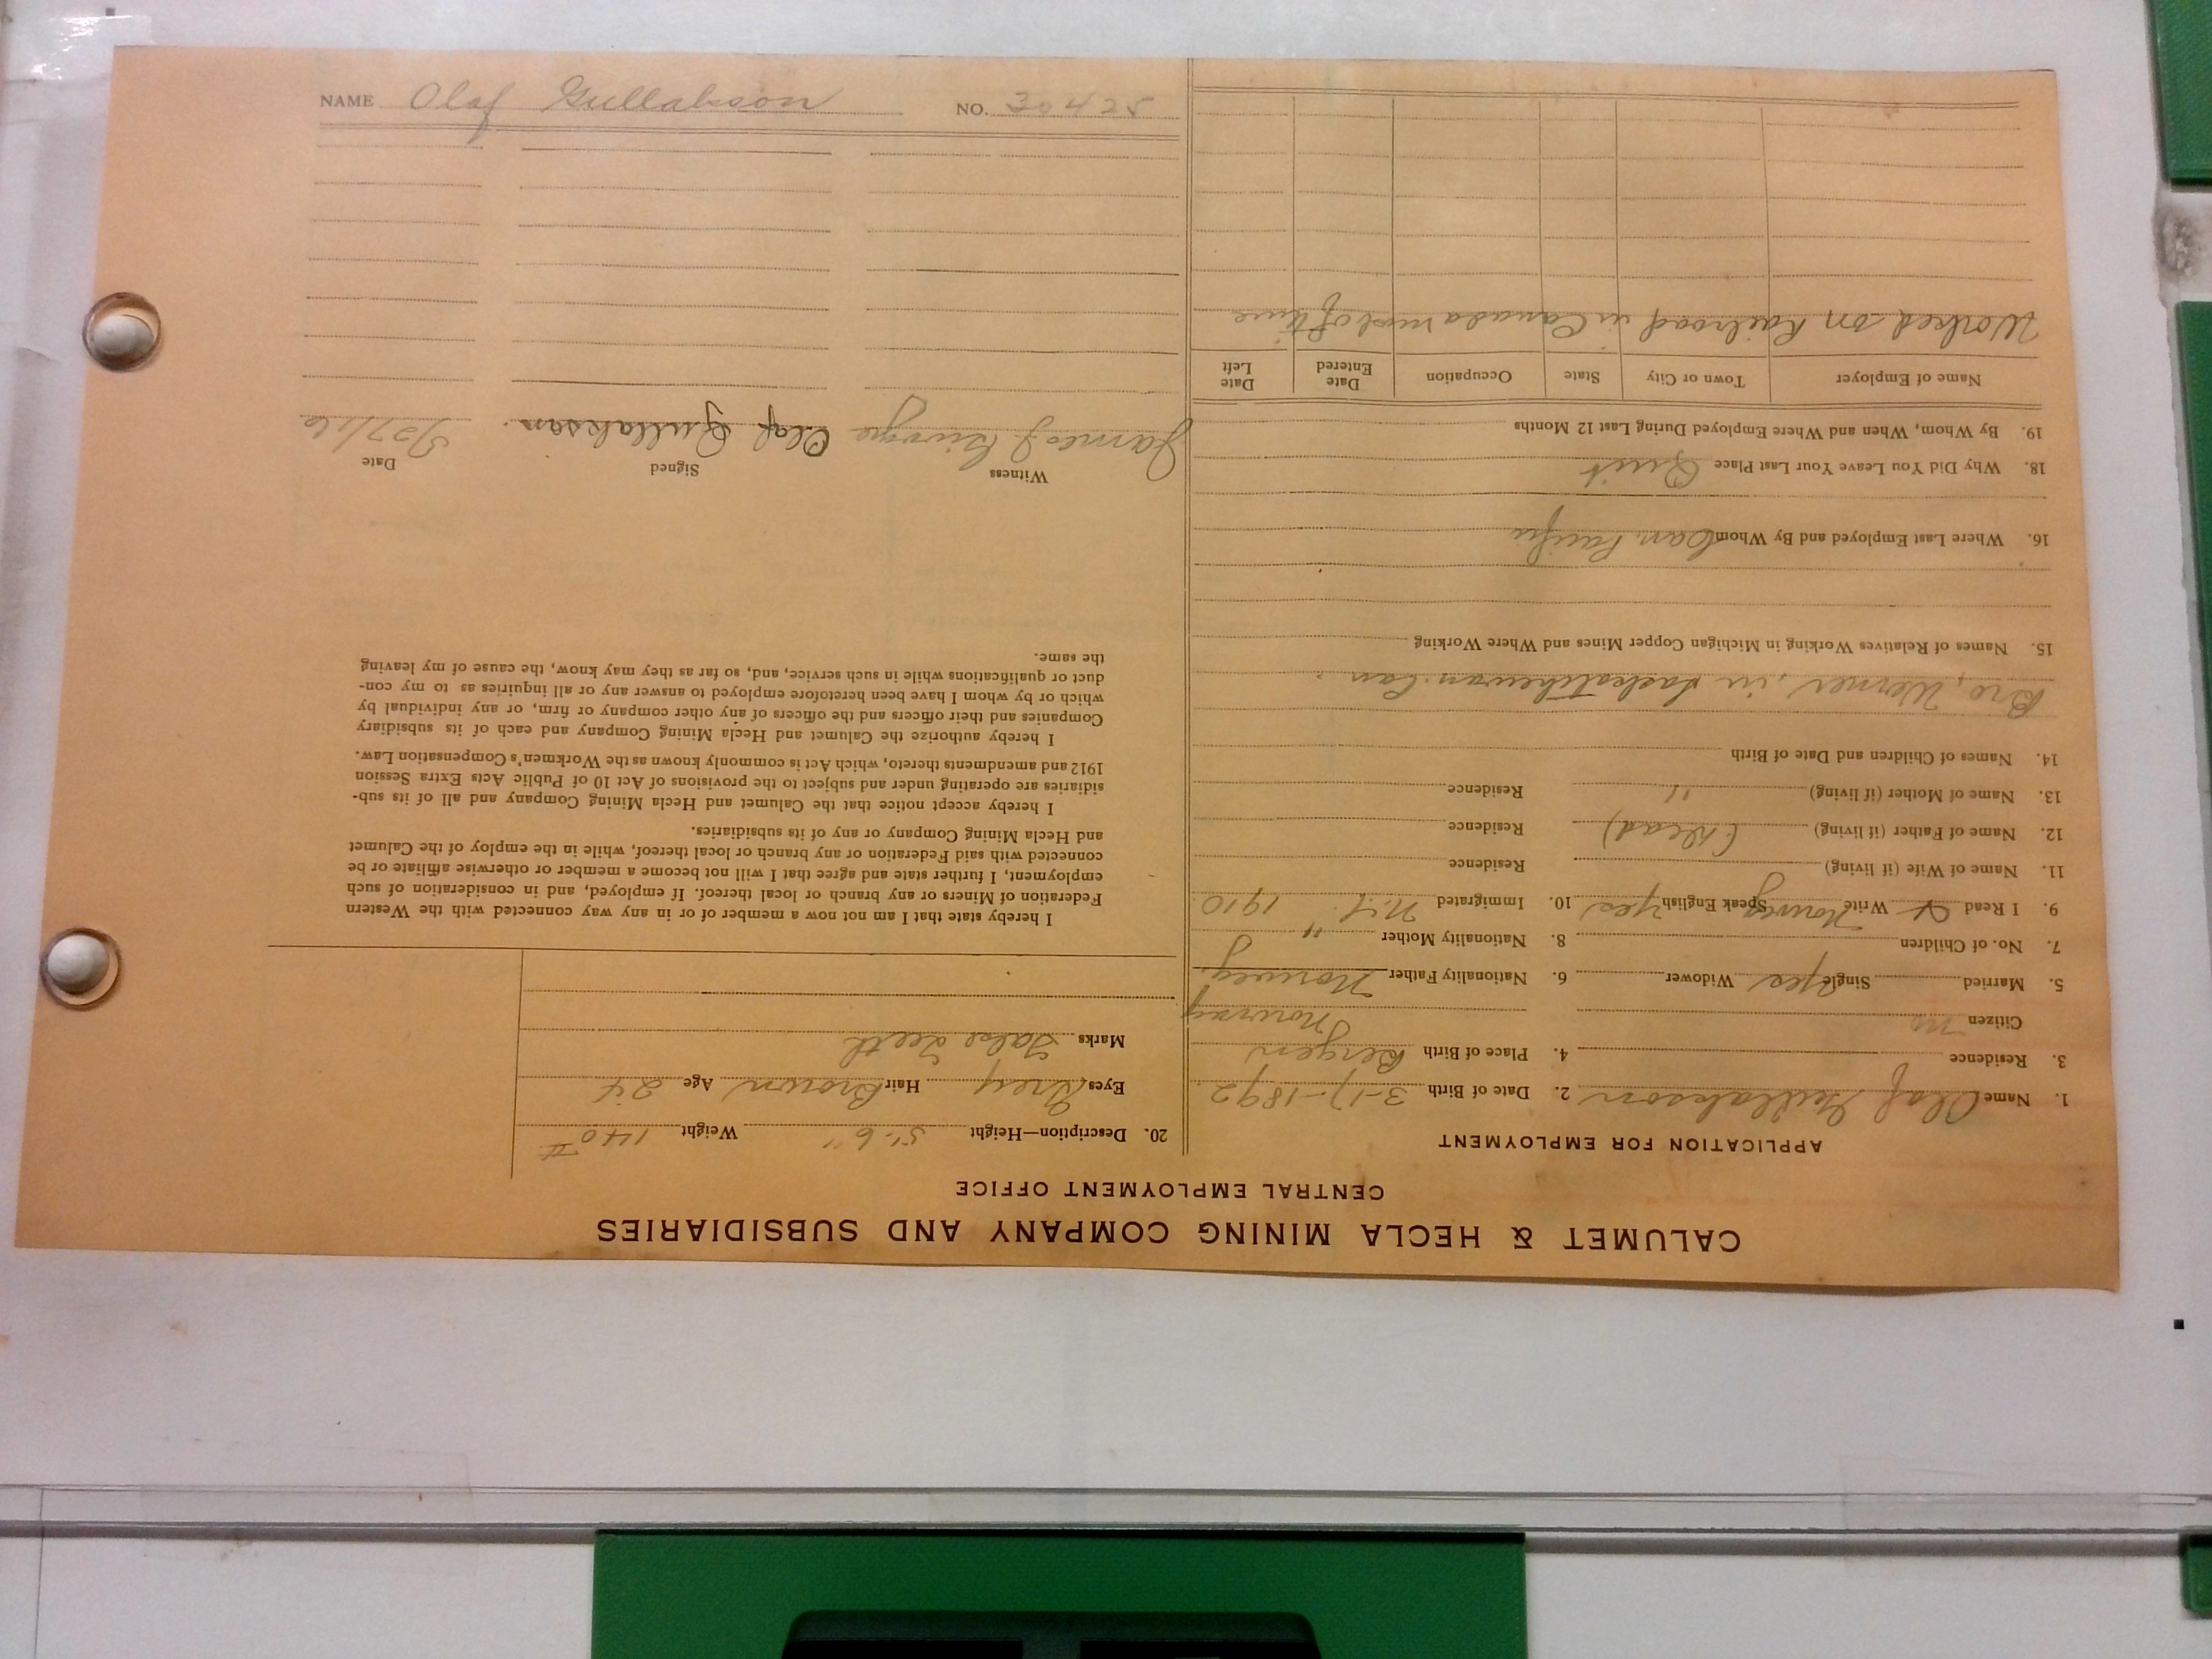 CALUMET & HECLA MINING COMPANY AND SUBSIDIARIES
CENTRAL EMPLOYMENT OFFICE
APPLICATION FOR EMPLOYMENT
1. Name Olaf Gullakson 2. Date of Birth 3-17-1892
3. Residence 4. Place of Birth Bergen
Citizen no Norway
5. Married Single yes Widower 6. Nationality Father Norway
7. No. of Children 8. Nationality Mother "
9. I Read & Write Norway Speak English yes 10. Immigrated N.Y. 1910
11. Name of Wife (if living) Residence
12. Name of Father (if living) (Dead) Residence
13. Name of Mother (if living) " Residence
14. Names of Children and Date of Birth
Bro, Werner, in Saskatchewan. Can.
15. Names of Relatives Working in Michigan Copper Mines and Where Working
16. Where Last Employed and By Whom Can. Pacific
18. Why Did You Leave Your Last Place Quit
19. By Whom, When and Where Employed During Last 12 Months
Name of Employer Town or City State Occupation Date Entered Date Left
Worked on Railroad in Canada most of time
20. Description—Height 5'-6" Weight 140 #
Eyes Grey Hair Brown Age 24
Marks False Teeth
I hereby state that I am not now a member of or in any way connected with the Western
Federation of Miners or any branch or local thereof. If employed, and in consideration of such
employment, I further state and agree that I will not become a member or otherwise affiliate or be
connected with said Federation or any branch or local thereof, while in the employ of the Calumet
and Hecla Mining Company or any of its subsidiaries.
I hereby accept notice that the Calumet and Hecla Mining Company and all of its sub-
sidiaries are operating under and subject to the provisions of Act 10 of Public Acts Extra Session
1912 and amendments thereto, which Act is commonly known as the Workmen's Compensation Law.
I hereby authorize the Calumet and Hecla Mining Company and each of its subsidiary
Companies and their officers and the officers of any other company or firm, or any individual by
which or by whom I have been heretofore employed to answer any or all inquiries as to my con-
duct or qualifications while in such service, and, so far as they may know, the cause of my leaving
the same.
Witness Signed Date
James J. Olaf Gullakson. 5/27/16
NAME Olaf Gullakson NO. 30425